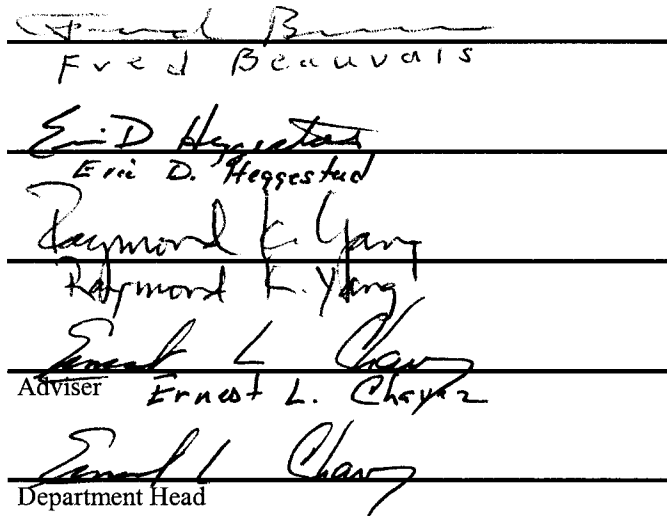 Fred Beauvais
Eric D. Heggestad
Raymond K. Yang
Raymond K. Yang
Ernest L Chavez
Adviser Ernest L. Chavez
Ernest L Chavez
Department Head